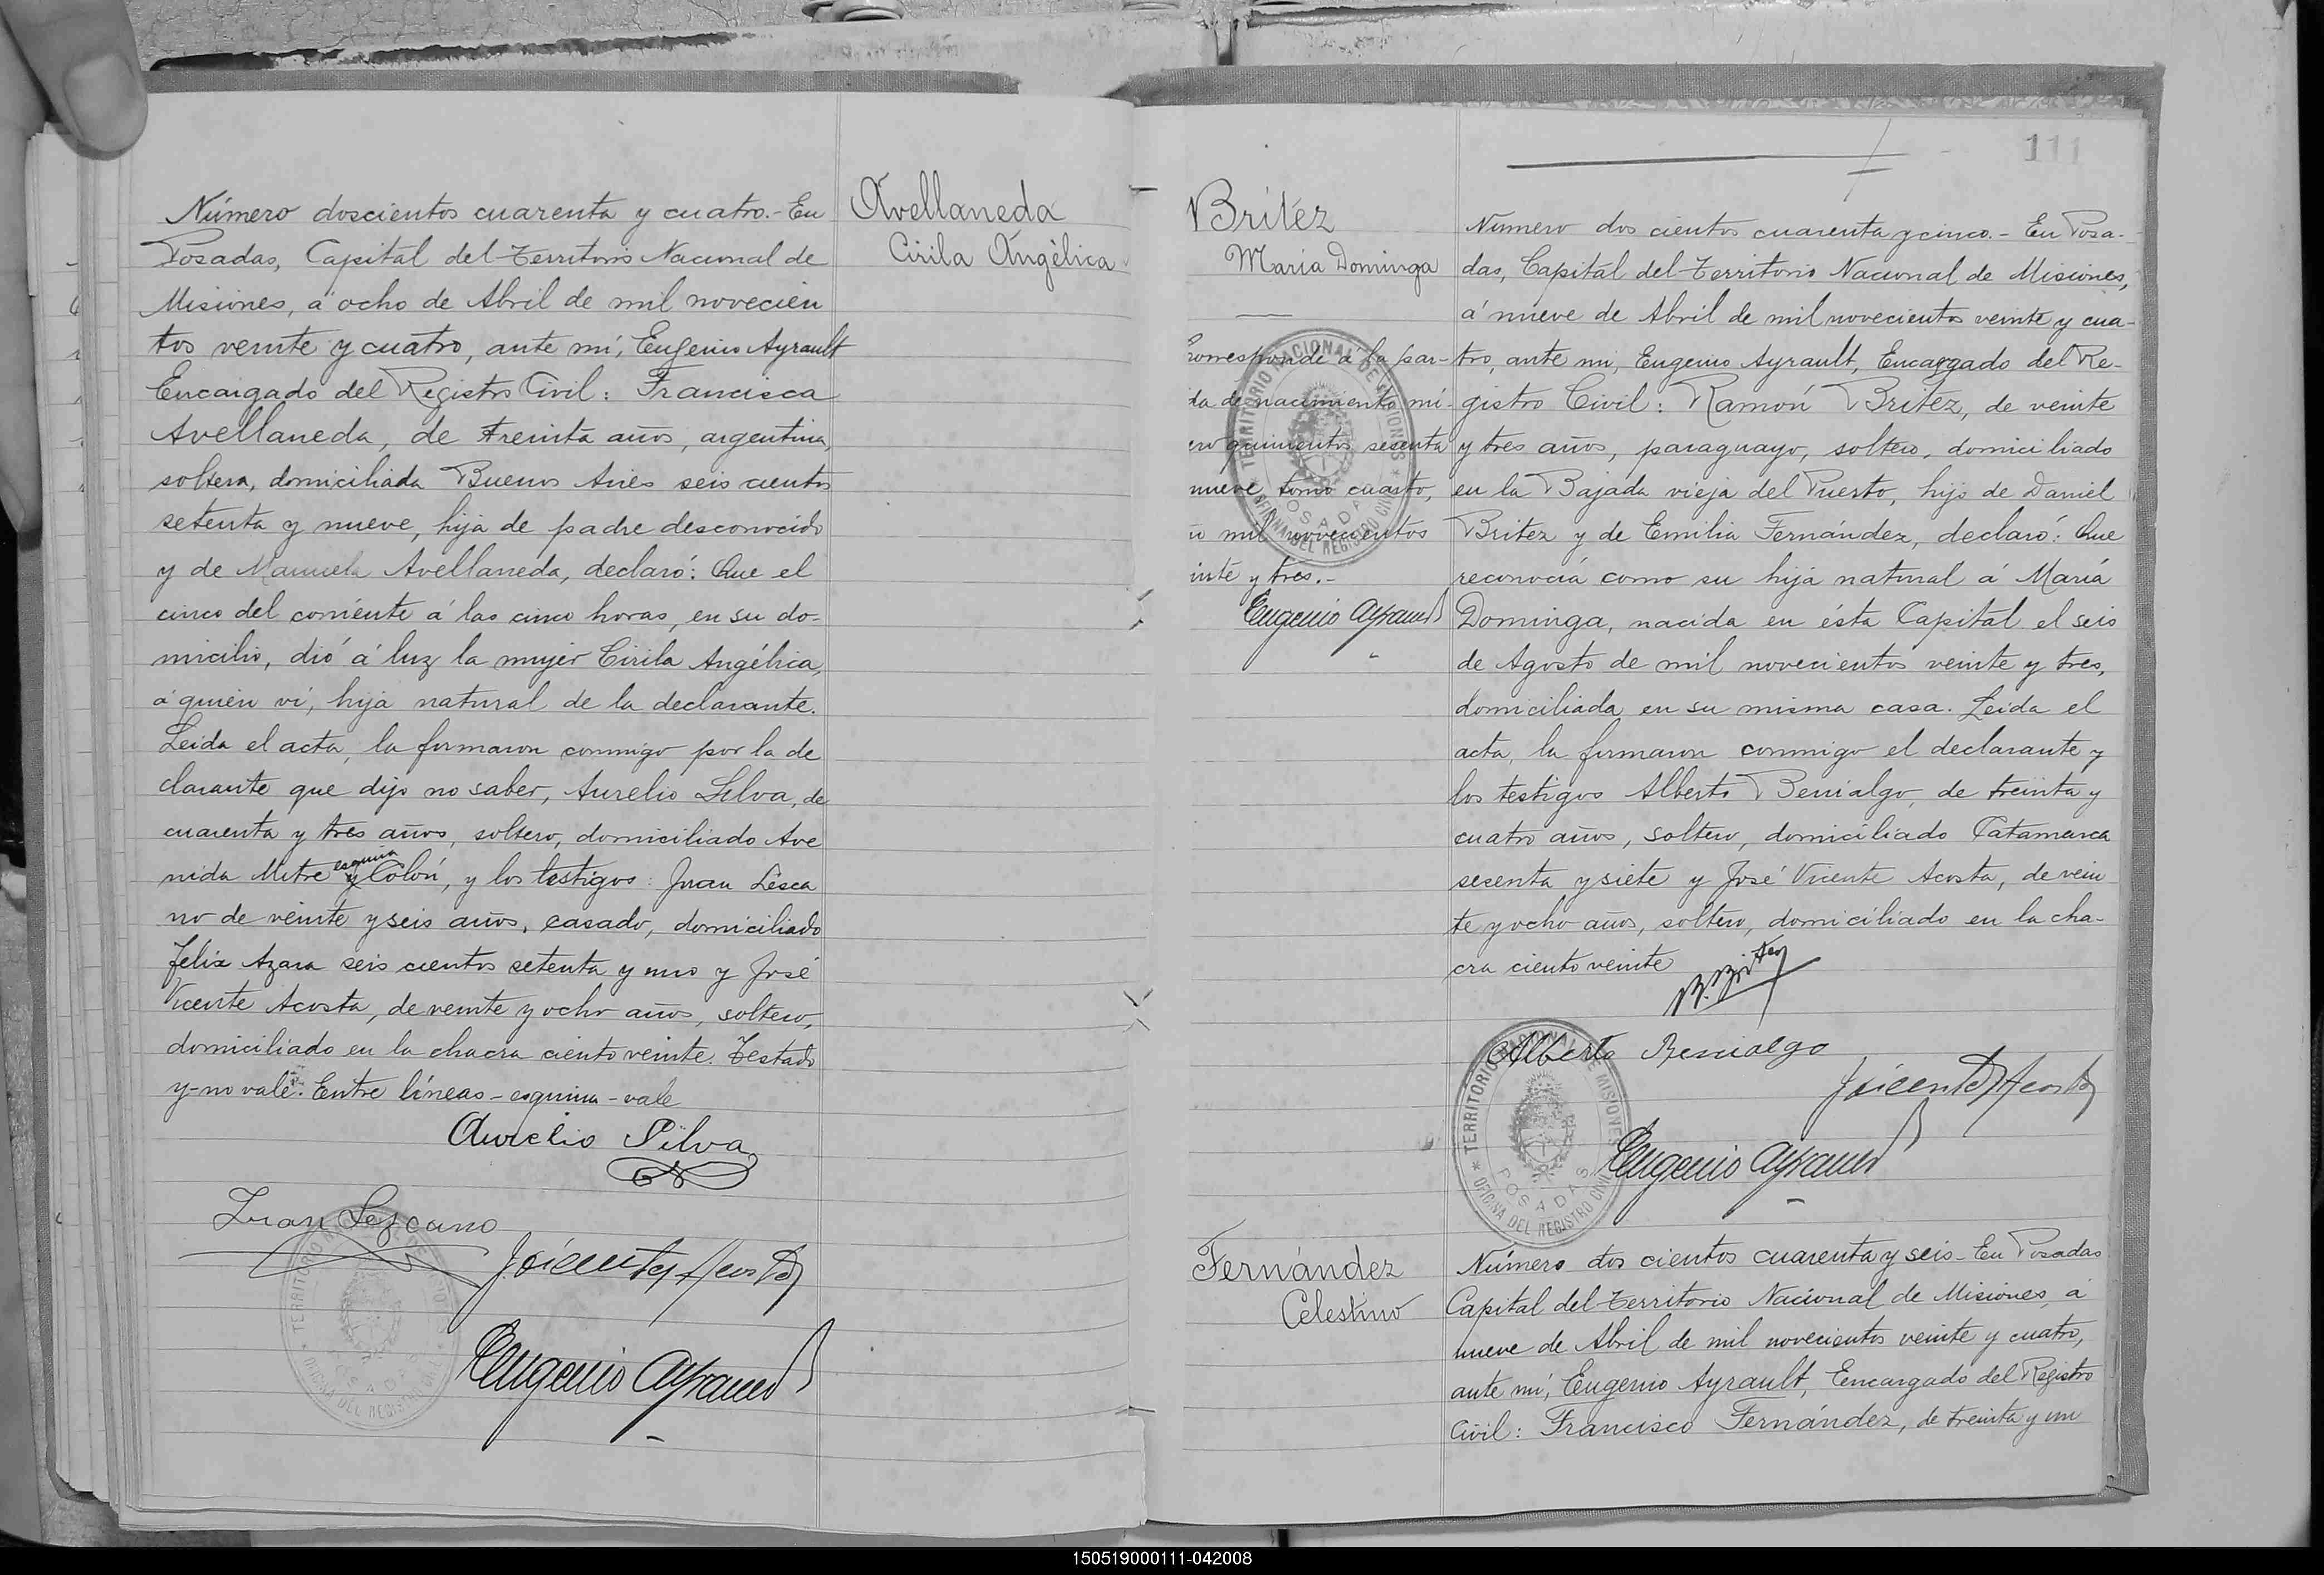 Número doscientos cuarenta y cuatro.- En
Posadas, Capital del Territorio Nacional de
Misiones, á ocho de Abril de mil novecien
tos veinte y cuatro, ante mí, Eugenio Ayrault
Encargado del Registro Civil: Francisca
Avellaneda, de treinta años, argentina,
soltera, domiciliada Buenos Aires seis cientos
setenta y nueve, hija de padre desconocido
y de Manuela Avellaneda, declaró: Que el
cinco del corriente á las cinco horas, en su do-
micilio, dió á luz la mujer Cirila Angélica,
á quien ví, hija natural de la declarante.
Leida el acta, la firmaron conmigo por la de
clarante que dijo no saber, Aurelio Silva, de
cuarenta y tres años, soltero, domiciliado Ave
esquina
nida Mitre y Colón, y los testigos: Juan Lesca
no de veinte y seis años, casado, domiciliado
Felix Azara seis cientos setenta y uno y José
Vicente Acosta, de veinte y ocho años, soltero,
domiciliado en la chacra ciento veinte. Testado
y-no vale. Entre líneas-esquina-vale
Aurelio Silva
Juan Lezcano
J Vicente Acosta
Eugenio Ayrault
TERRITORIO
POSADAS
OFICINA DEL REGISTRO CIVIL
Avellaneda
Cirila Angélica
111
Britez
María Dominga
Corresponde á la par-
ida de nacimiento nú-
ero quinientos sesenta
nueve, tomo cuarto,
o mil novecientos
inte y tres.-
Eugenio Ayrault
TERRITORIO NACIONAL DE MISIONES
POSADAS
OFICINA DEL REGISTRO CIVIL
Número dos cientos cuarenta y cinco.- En Posa-
das, Capital del Territorio Nacional de Misiones,
á nueve de Abril de mil novecientos veinte y cua-
tro, ante mi, Eugenio Ayrault, Encargado del Re-
gistro Civil: Ramón Britez, de veinte
y tres años, paraguayo, soltero, domiciliado
en la Bajada vieja del Puerto, hijo de Daniel
Britez y de Emilia Fernández, declaró: Que
reconocía como su hija natural á María
Dominga, nacida en ésta Capital el seis
de Agosto de mil novecientos veinte y tres,
domiciliada en su misma casa. Leida el
acta, la firmaron conmigo el declarante y
los testigos Alberto Benialgo, de treinta y
cuatro años, soltero, domiciliado Catamarca
sesenta y siete y José Vicente Acosta, de vein
te y ocho años, soltero, domiciliado en la cha-
cra ciento veinte
R. Britez
Alberto Benialgo
J Vicente Acosta
Eugenio Ayrault
TERRITORIO NACIONAL DE MISIONES
POSADAS
OFICINA DEL REGISTRO CIVIL
Fernández
Celestino
Número dos cientos cuarenta y seis- En Posadas
Capital del Territorio Nacional de Misiones, á
nueve de Abril de mil novecientos veinte y cuatro,
ante mí, Eugenio Ayrault, Encargado del Registro
Civil: Francisco Fernández, de treinta y un
150519000111-042008